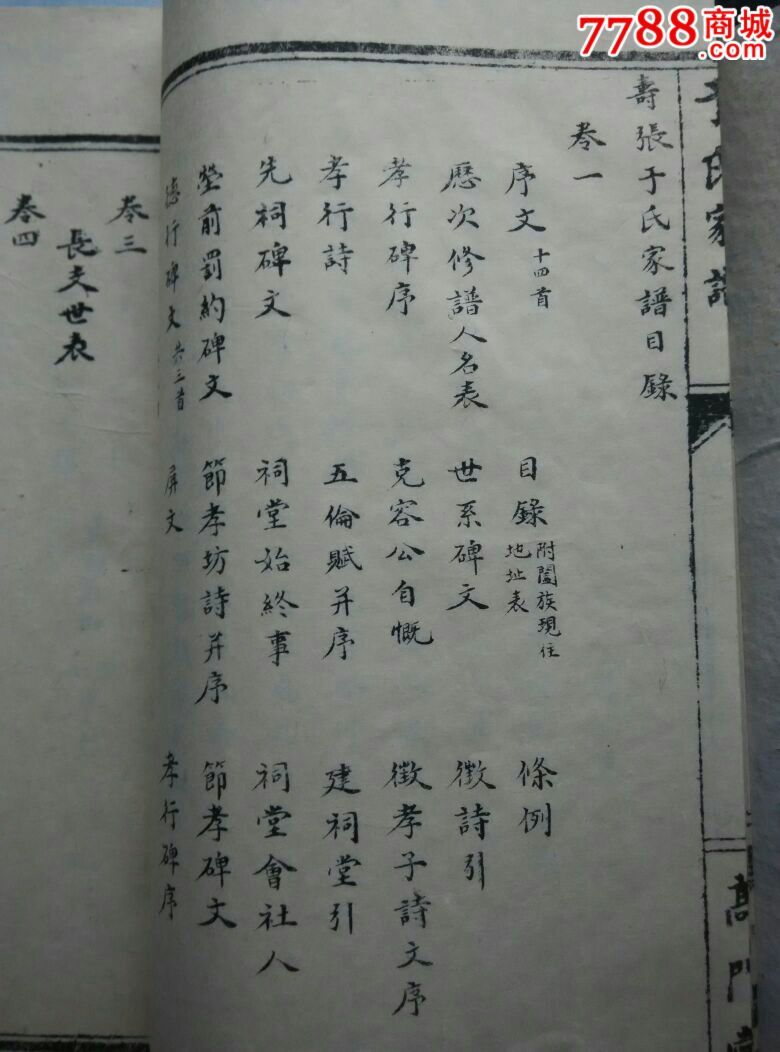 7788商城
.com
于氏家譜
高門
壽張于氏家譜目錄
卷一
序文 十四首 目錄 附闔族現住地址表 條例
歷次修譜人名表 世系碑文 徵詩引
孝行碑序 克容公自慨 徵孝子詩文序
孝行詩 五倫賦并序 建祠堂引
先祠碑文 祠堂始終事 祠堂會社人
塋前罰約碑文 節孝坊詩并序 節孝碑文
德行碑文 共三首 屏文 孝行碑序
卷三
長支世表
卷四